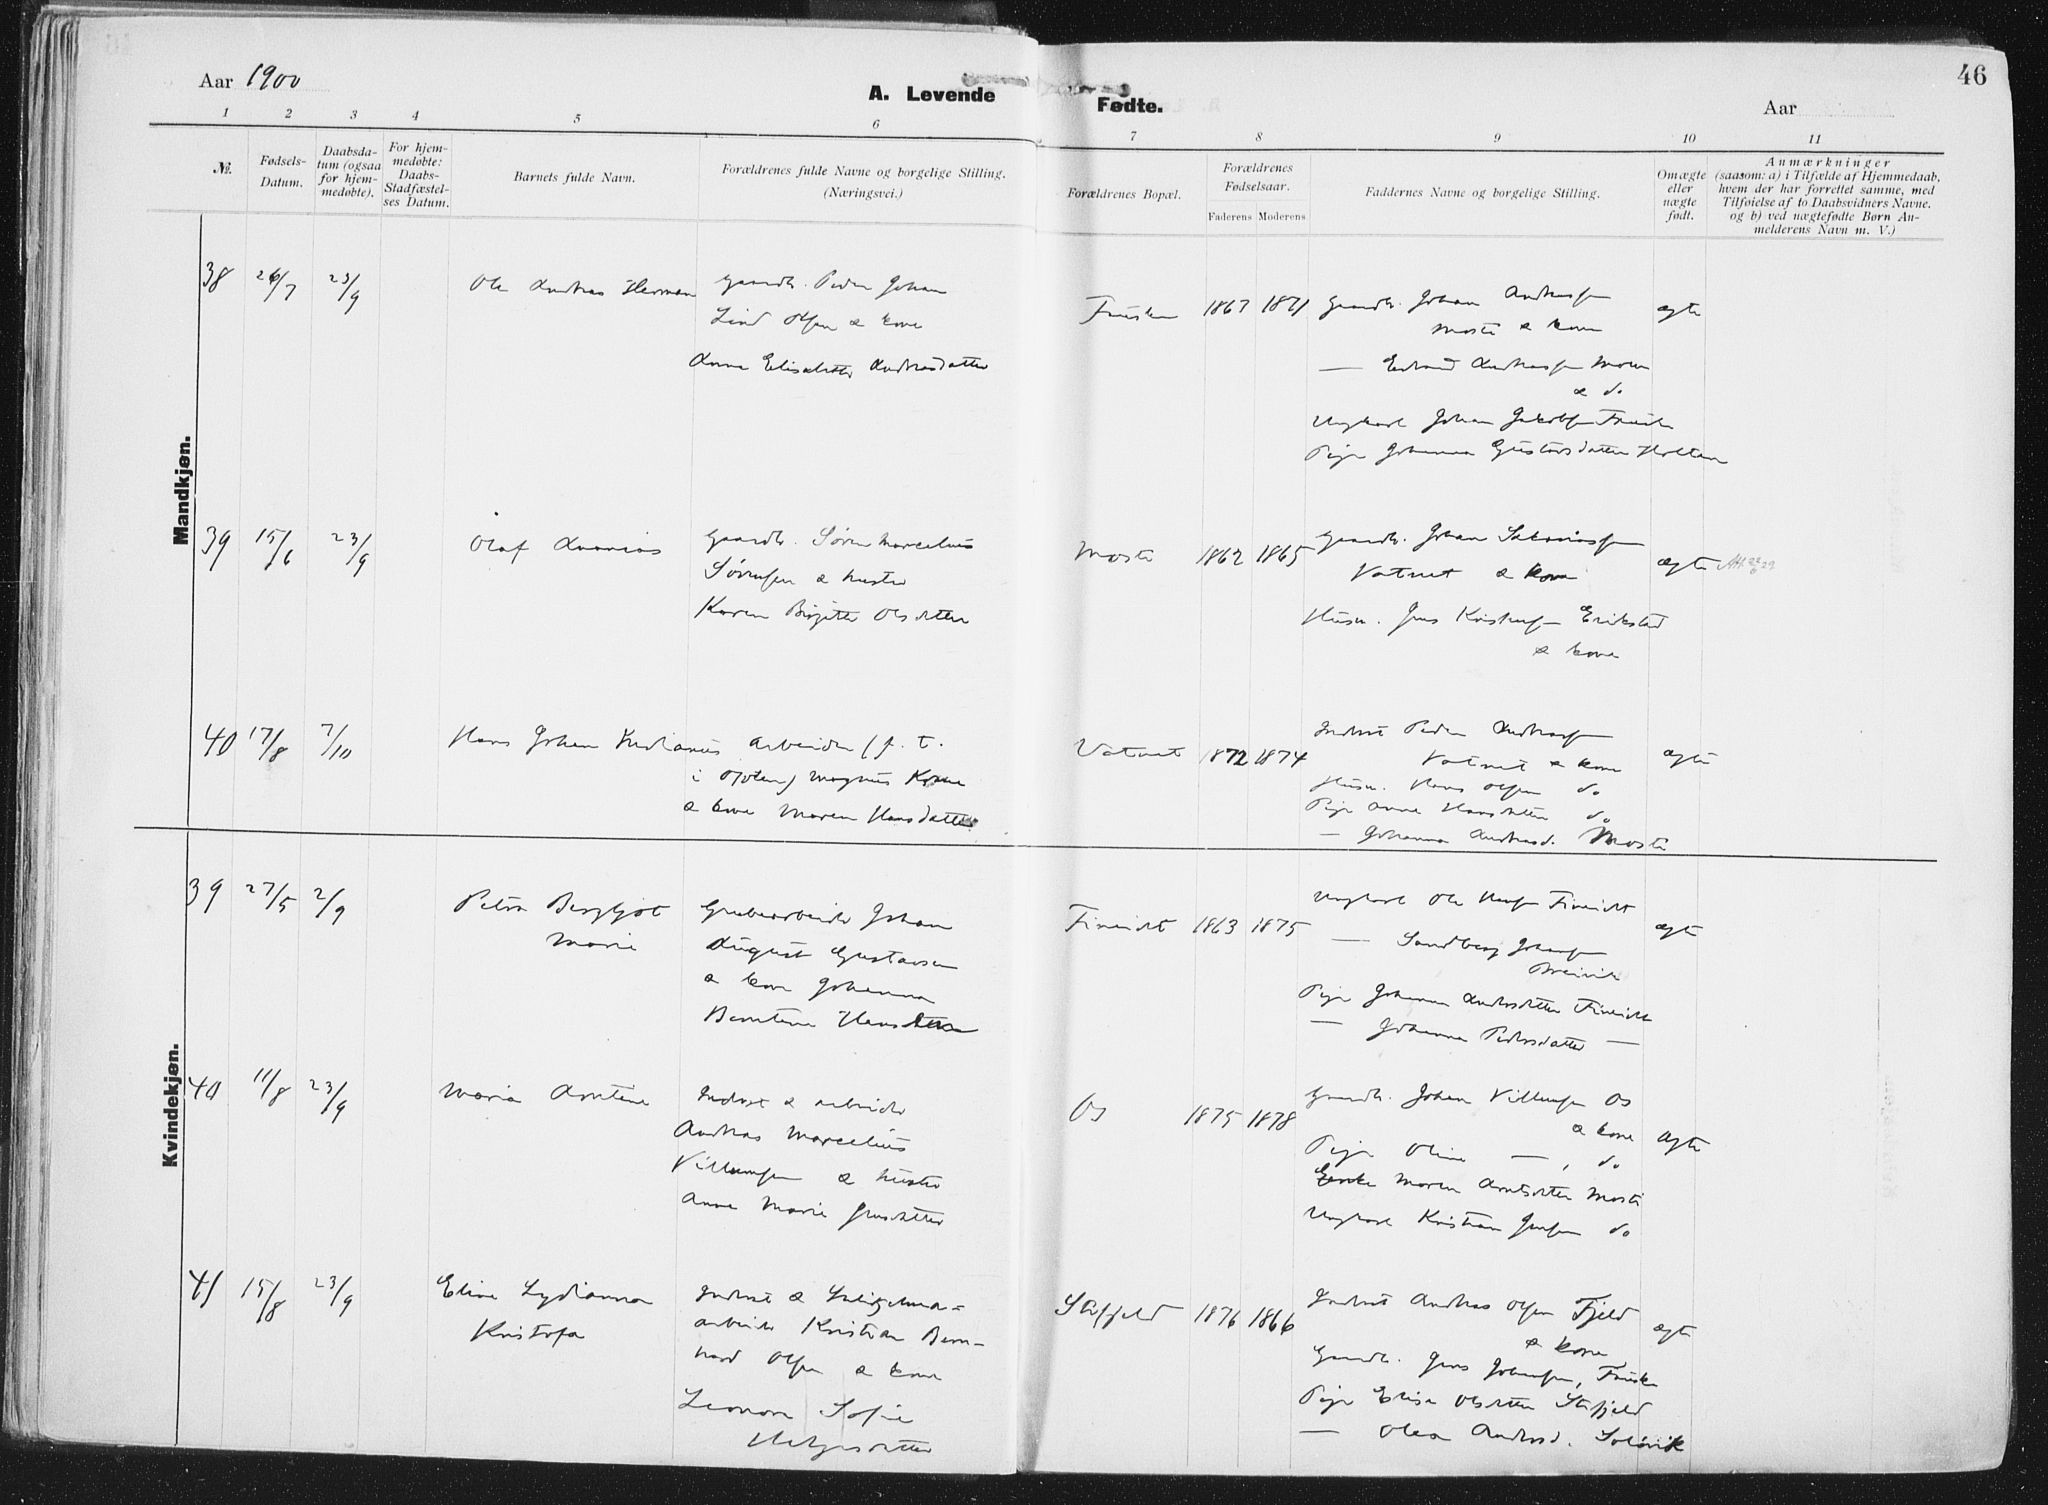 46
Aar 1900
A. Levende Fødte.
Aar
1 2 3 4 5 6 7 8 9 10 11
№.
Fødsels-
Datum.
Daabsda-
tum (ogsaa
for hjem-
medøbte).
For hjem-
medøbte:
Daabs-
Stadfæstel-
ses Datum.
Barnets fulde Navn.
Forældrenes fulde Navne og borgelige Stilling.
(Næringsvei.)
Forældrenes Bopæl.
Forældrenes
Fødselsaar.
Faderens Moderens
Faddernes Navne og borgelige Stilling.
Om ægte
eller
nægte
født.
Anmærkninger
(saasom: a) i Tilfælde af Hjemmedaab,
hvem der har forrettet samme, med
Tilføielse af to Daabsvidners Navne.
og b) ved nægtefødte Børn An-
melderens Navn m. V.)
Mandkjøn.
38 26/7 23/9
Ole Andreas Herman
Gaardb. Peder Johan
Lind Olsen & kone
Anna Elisabeth Andreasdatter
1867 1871
Gaardb. Johan Andreassen
Mosti & kone
— Andreassen Moen
& do
Ungkarl Johan Jakobsen
Pige Johanna Gustavsdatter Holtan
ægte
39 15/6 23/9
Olaf Ananias
Gaardb. Søren Marcelius
Sørensen & hustru
Karen Birgitte Olsdatter
Mosti 1862 1865
Gaardb. Johan Sakariassen
Vatnet & kone
Husm. Jens Eriksted
& kone
ægte
40 17/8 7/10
Hans Johan Kristianus
Arbeider (f. t.
i Ofoten) Magnus
& kone Maren Hansdatter
Vatnet 1872 1874
Inderst Peder Andreassen
Vatnet & kone
Husm. Hans Olsen do
Pige Anne Hansdatter do
— Johanna Andreasd. Mosti
ægte
Kvindekjøn.
39 27/5 2/9
Petra Bergljot
Marie
Grubearbeider Johan
August Gustavsen
& kone Johanna
Berntine Hansdatter
Fineidet 1863 1875
Ungkarl Ole Fineidet
— Sandberg Johansen
Breivik
Pige Johanna Andersdatter Fineidet
— Johanna Pedersdatter —
ægte
40 11/8 23/9
Maria Arntine
Inderst & arbeider
Andreas Marcelius
Villumsen & hustru
Anne Marie Jensdatter
Os 1875 1878
Gaardb. Johan Villumsen Os
& kone
Pige Oline —, do
Enke Maren Arntsdatter Mosti
Ungkarl Kristian Jensen do
ægte
41 15/8 23/9
Eline Lydianna
Kristofa
Inderst &
arbeider Kristian Bern-
hard Olsen & kone
Leonore Sofie
Helgesdatter
Stifjeld 1876 1866
Inderst Andreas Olsen Fjeld
& kone
Gaardb. Jens Johansen,
Pige Elise Olsdatter Stifjeld
— Olea Andersd. Solvik
ægte